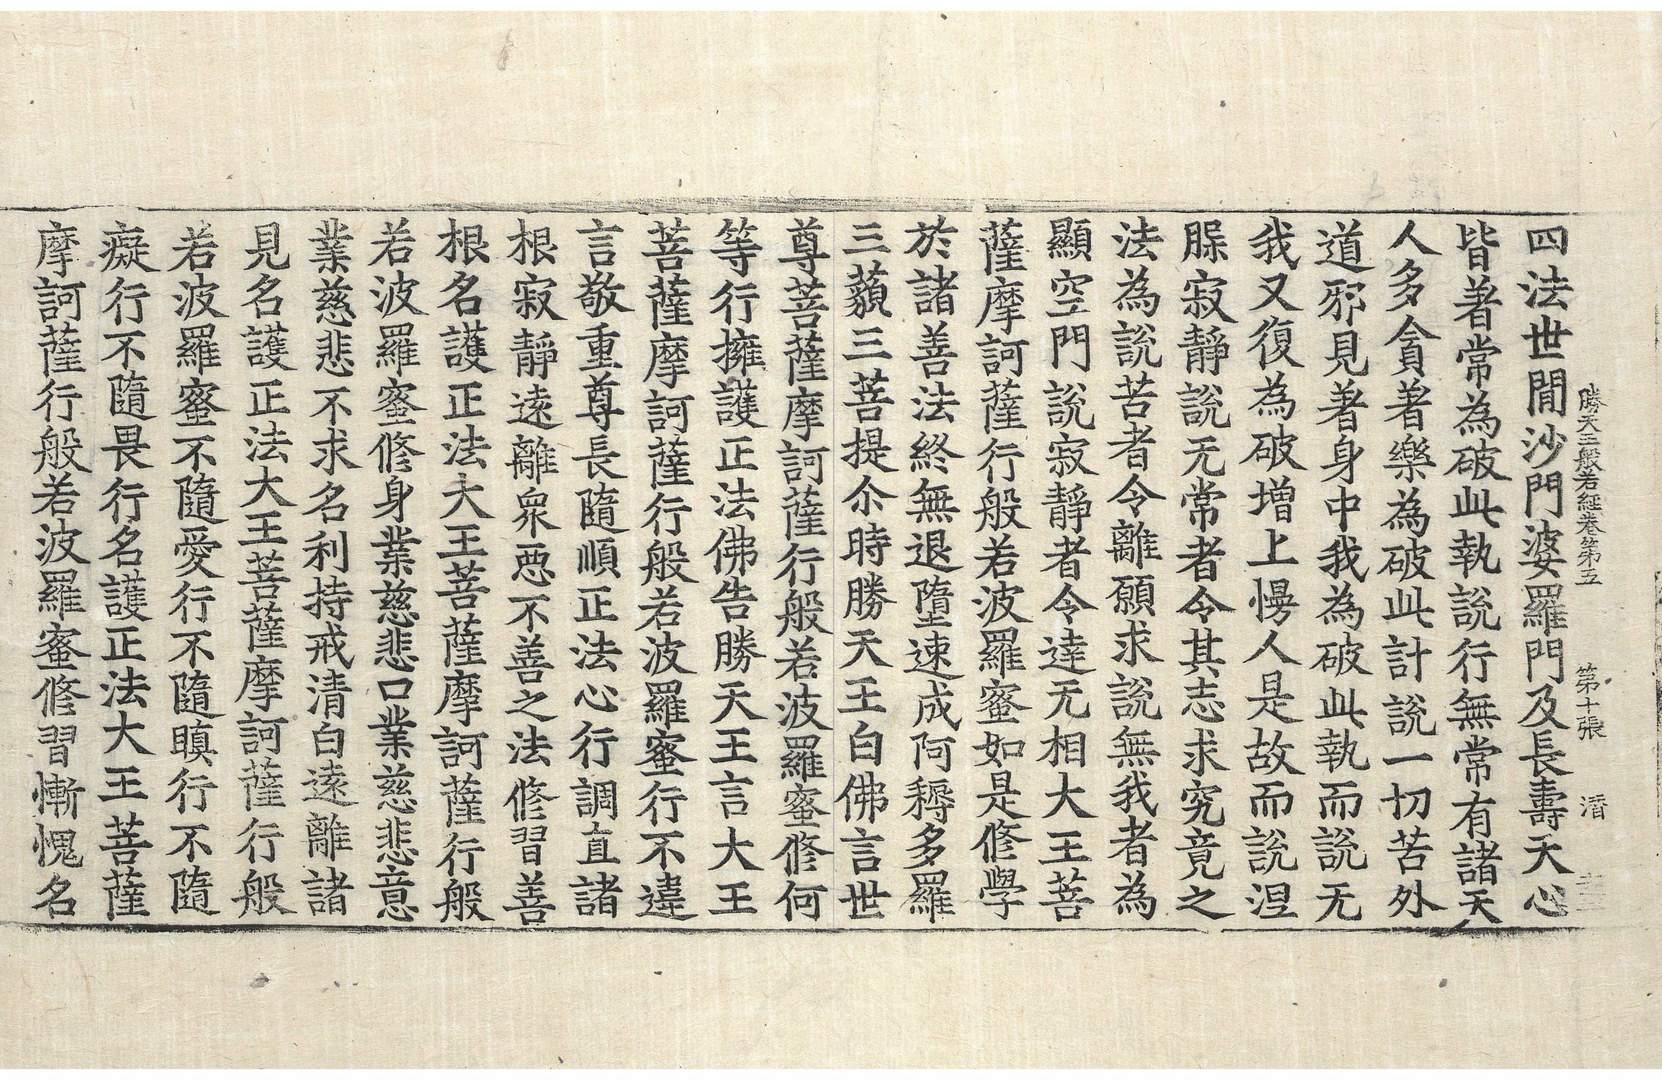 勝天王般若經卷第五　第十張　潛
四法世間沙門婆羅門及長壽天心
皆著常為破此執說行無常有諸天
人多貪著樂為破此計說一切苦外
道邪見著身中我為破此執而說无
我又復為破增上慢人是故而說涅
脲寂靜說无常者令其志求究竟之
法為說苦者令離願求說無我者為
顯空門說寂靜者令達无相大王菩
薩摩訶薩行般若波羅蜜如是修學
於諸善法終無退墮速成阿耨多羅
三藐三菩提尒時勝天王白佛言世
尊菩薩摩訶薩行般若波羅蜜修何
等行擁護正法佛告勝天王言大王
菩薩摩訶薩行般若波羅蜜行不違
言敬重尊長隨順正法心行調直諸
根寂靜遠離衆惡不善之法修習善
根名護正法大王菩薩摩訶薩行般
若波羅蜜修身業慈悲口業慈悲意
業慈悲不求名利持戒清白遠離諸
見名護正法大王菩薩摩訶薩行般
若波羅蜜不隨愛行不隨瞋行不隨
癡行不隨畏行名護正法大王菩薩
摩訶薩行般若波羅蜜修習慚愧名